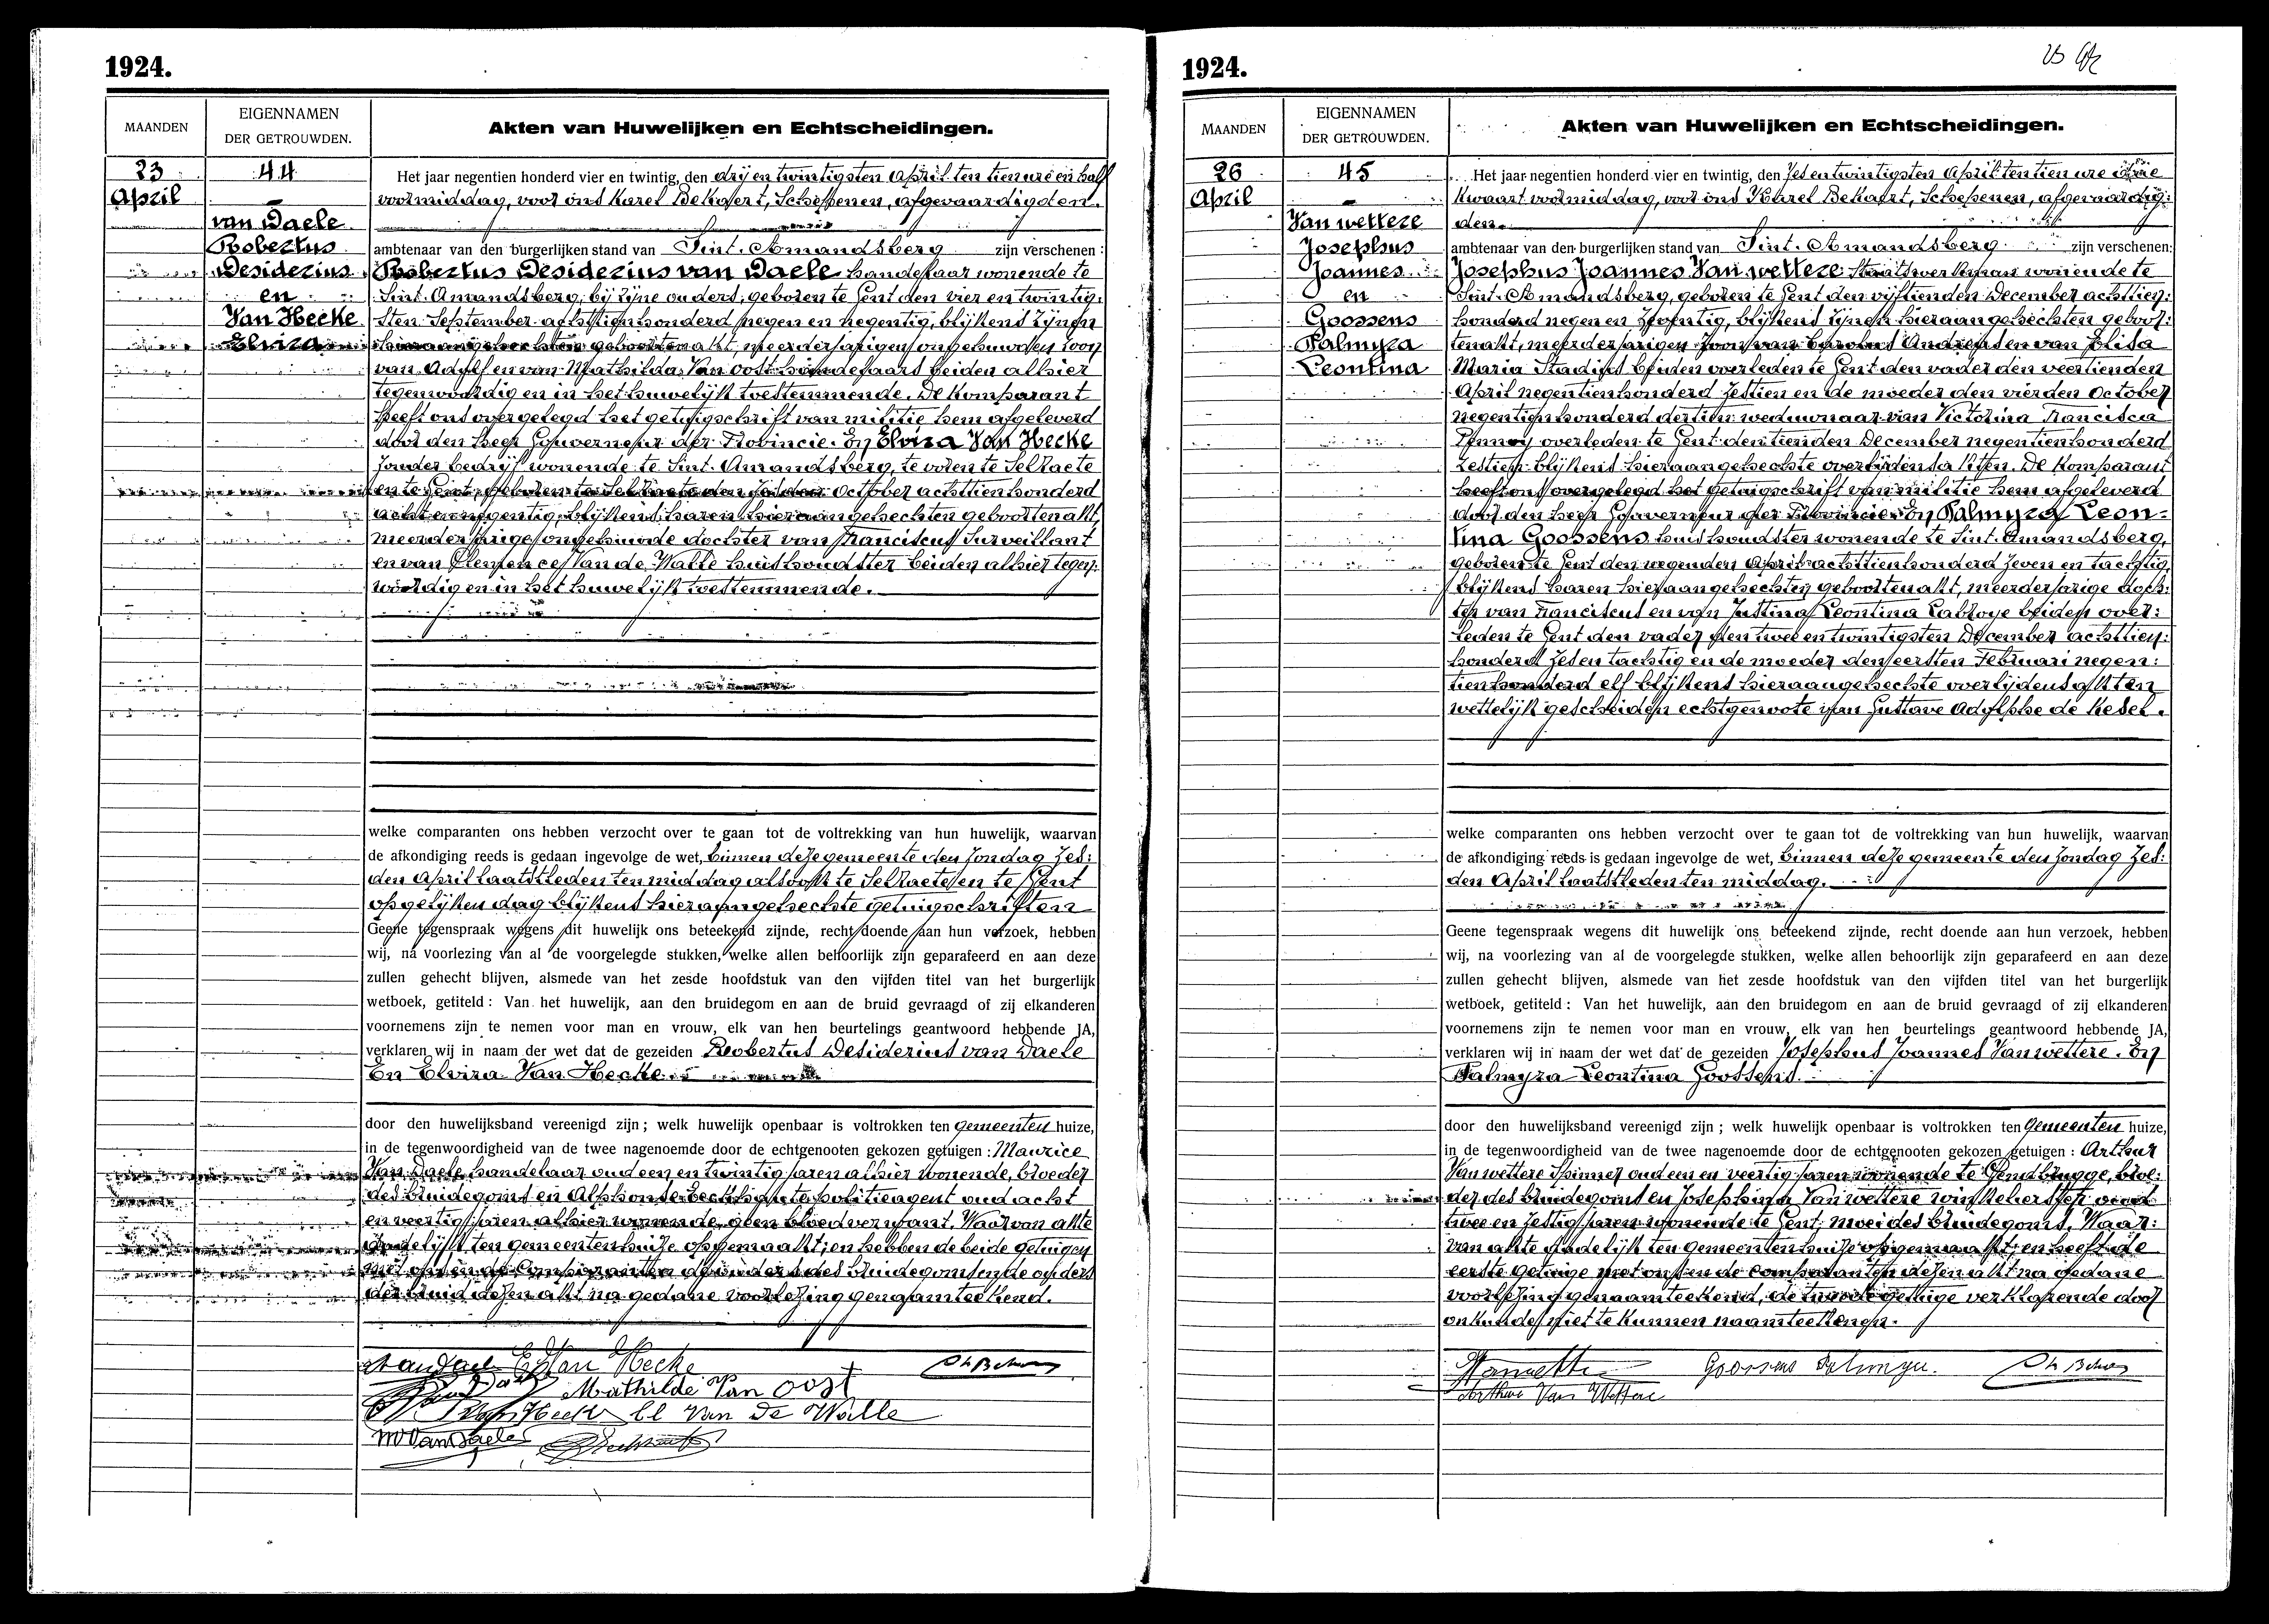 1924.
MAANDEN
EIGENNAMEN
DER GETROUWDEN.
Akten van Huwelijken en Echtscheidingen.
23
April
44
van Daele
Robertus
Desiderius
en
Van Hecke
Elvira
Het jaar negentien honderd vier en twintig, den dry en twintigsten April ten tien ure en half
voormiddag, voor ons Karel Bekaert, Schepenen, afgevaardigden
ambtenaar van den burgerlijken stand van Sint. Amandsberg zijn verschenen:
Robertus Desiderius van Daele handelaar wonende te
Sint. Amandsberg, bij zijne ouders, geboren te Gent den vier en twintig:
sten September achttien honderd negen en negentig, blijkens zijnen
hieraangehechten geboortenakt, meerderjarigen ongehuwden zoon
van Adolf en van Mathilda Van Oost handelaars beiden alhier
tegenwoordig en in het huwelijk toestemmende. De komparant
heeft ons overgelegd het getuigschrift van militie hem afgeleverd
door den heer Gouverneur der Provincie. En Elvira Van Hecke
zonder bedrijf wonende te Sint. Amandsberg, te voren te Selzaete
en te Gent, geboren te Selzaete den zesden October achttien honderd
acht en negentig, blijkens haren hieraangehechten geboortenakt,
meerderjarige ongehuwde dochter van Franciscus Surveillant
en van Clemence Van de Walle huishoudster beiden alhier tegen:
woordig en in het huwelijk toestemmende.
welke comparanten ons hebben verzocht over te gaan tot de voltrekking van hun huwelijk, waarvan
de afkondiging reeds is gedaan ingevolge de wet, binnen deze gemeente den Zondag zes:
den April laatstleden ten middag alsook te Selzaete en te Gent
op gelijken dag blijkens hieraangehechte getuigschriften
Geene tegenspraak wegens dit huwelijk ons beteekend zijnde, recht doende aan hun verzoek, hebben
wij, na voorlezing van al de voorgelegde stukken, welke allen behoorlijk zijn geparafeerd en aan deze
zullen gehecht blijven, alsmede van het zesde hoofdstuk van den vijfden titel van het burgerlijk
wetboek, getiteld: Van het huwelijk, aan den bruidegom en aan de bruid gevraagd of zij elkanderen
voornemens zijn te nemen voor man en vrouw, elk van hen beurtelings geantwoord hebbende JA,
verklaren wij in naam der wet dat de gezeiden Robertus Desiderius van Daele
En Elvira Van Hecke
door den huwelijksband vereenigd zijn; welk huwelijk openbaar is voltrokken ten gemeenten huize,
in de tegenwoordigheid van de twee nagenoemde door de echtgenooten gekozen getuigen: Maurice
Van Daele handelaar oud een en twintig jaren alhier wonende, broeder
des bruidegoms en Alphonse politieagent oud acht
en veertig jaren alhier wonende, geen bloedverwant. Waarvan akte
dadelijk ten gemeentenhuize opgemaakt; en hebben de beide getuigen
met ons en de Comparanten de ouders des bruidegoms en de ouders
der bruid dezen akt na gedane voorlezing genaamteekend.
E Van Hecke
Mathilde Van Oost
Cl Van De Walle
M Van Daele
1924.
MAANDEN
EIGENNAMEN
DER GETROUWDEN.
Akten van Huwelijken en Echtscheidingen.
26
April
45
Van wettere
Josephus
Joannes
en
Goossens
Palmyra
Leontina
Het jaar negentien honderd vier en twintig, den zes en twintigsten April ten tien ure drie
kwaart voormiddag, voor ons Karel Bekaert, Schepenen, afgevaardig:
den.
ambtenaar van den burgerlijken stand van Sint. Amandsberg zijn verschenen:
Josephus Joannes Van wettere Staatswerkman wonende te
Sint. Amandsberg, geboren te Gent den vijftienden December achttien:
honderd negen en zeventig, blijkens zijnen hieraangehechten geboor:
tenakt, meerderjarigen zoon van Carolus Andreas en van Elisa
Maria Stadius beiden overleden te Gent den vader den veertienden
April negentien honderd zestien en de moeder den vierden October
negentien honderd dertien weduwnaar van Victorina Francisca
overleden te Gent den tienden December negentien honderd
zestien blijkens hieraangehechte overlijdensakten. De komparant
heeft ons overgelegd het getuigschrift van militie hem afgeleverd
door den heer Gouverneur der Provincie. En Palmyra Leon-
tina Goossens huishoudster wonende te Sint. Amandsberg,
geboren te Gent den negenden April achttien honderd zeven en tachtig,
blijkens haren hieraangehechten geboortenakt, meerderjarige doch:
ter van Franciscus en van Justina Leontina Labroye beiden over:
leden te Gent den vader den twee en twintigsten December achttien:
honderd zes en tachtig en de moeder den eersten Februari negen:
tien honderd elf blijkens hieraangehechte overlijdensakten
wettelijk gescheiden echtgenoote van Gustave Adolphe de Kesel.
welke comparanten ons hebben verzocht over te gaan tot de voltrekking van hun huwelijk, waarvan
de afkondiging reeds is gedaan ingevolge de wet, binnen deze gemeente den Zondag zes:
den April laatstleden ten middag.
Geene tegenspraak wegens dit huwelijk ons beteekend zijnde, recht doende aan hun verzoek, hebben
wij, na voorlezing van al de voorgelegde stukken, welke allen behoorlijk zijn geparafeerd en aan deze
zullen gehecht blijven, alsmede van het zesde hoofdstuk van den vijfden titel van het burgerlijk
wetboek, getiteld: Van het huwelijk, aan den bruidegom en aan de bruid gevraagd of zij elkanderen
voornemens zijn te nemen voor man en vrouw, elk van hen beurtelings geantwoord hebbende JA,
verklaren wij in naam der wet dat de gezeiden Josephus Joannes Van wettere. En
Palmyra Leontina Goossens.
door den huwelijksband vereenigd zijn; welk huwelijk openbaar is voltrokken ten Gemeenten huize,
in de tegenwoordigheid van de twee nagenoemde door de echtgenooten gekozen getuigen: Arthur
Van wettere Spinner oud een en veertig jaren wonende te Gendbrugge, broe:
der des bruidegoms en Josephina Van wettere winkelierster oud
twee en zestig jaren wonende te Gent moei des bruidegoms. Waar:
van akte dadelijk ten gemeentenhuize opgemaakt; en heeft de
eerste getuige met ons en de comparanten dezen akt na gedane
voorlezing genaamteekend, de tweede getuige verklarende door
onkunde niet te kunnen naamteekenen.
Goossens Palmyre.
Arthur Van Wettere